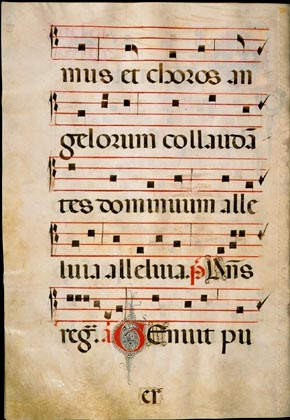 mus et choros an
gelorum collaudā
tes dominum alle
luia alleluia. p̄s Dn̄s
reg. ā Genuit pu
er